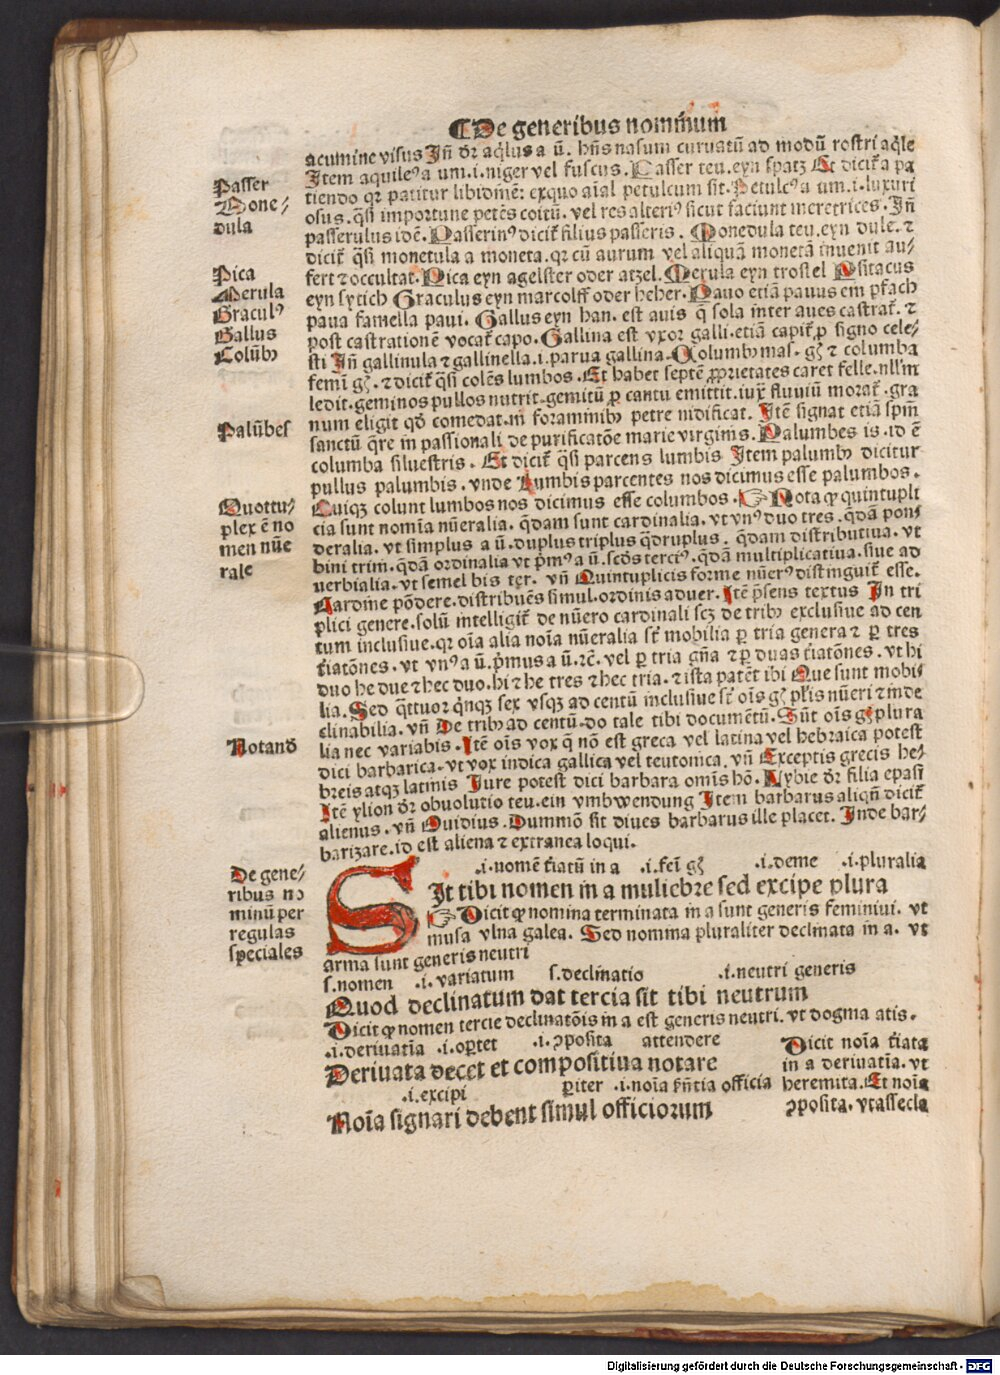 De generibus nominum
acumine visus Jn̄ dr̄ aq̄lus a ū. hn̄s nasum curuatū ad modū rostri aq̄le
Item aquileꝰ a um.i.niger vel fuscus. Passer teu.eyn spatz Et dicit̄ a pa
Passer
tiendo qr patitur libidinē: exquo aīal petulcum sit. Petulcꝰ a um.i.luxuri
Mone/
osus. q̄si importune petēs coitū. vel res alteriꝰ sicut faciunt meretrices. Jn̄
dula
passerulus idē. Passerinꝰ dicit̄ filius passeris. Monedula teu.eyn dule. ⁊
dicit̄ q̄si monetula a moneta. qr cū aurum vel aliquā monetā inuenit au/
Pica
fert ⁊ occultat. Pica eyn agelster oder atzel. Merula eyn trostel Psitacus
Merula
eyn sytich Graculus eyn marcolff oder heher. Pauo etiā pauus ein pfach
Graculꝰ
paua famella paui. Gallus eyn han. est auis q̄ sola inter aues castrat̄. ⁊
Gallus
post castrationē vocat̄ capo. Gallina est vxor galli. etiā capit̄ ꝓ signo cele/
Colūbꝰ
sti Jn̄ gallinula ⁊ gallinella.i.parua gallina. Columbꝰ mas. gꝫ ⁊ columba
femi gꝫ. ⁊ dicit̄ q̄si colēs lumbos. Et habet septē ꝓprietates caret felle. nllm̄
ledit. geminos pullos nutrit. gemitū ꝓ cantu emittit. iux̄ fluuiū morat̄. gra
num eligit qd̄ comedat. in foraminibꝰ petre nidificat. Itē signat etiā spm̄
Palūbes
sanctū q̄re in passionali de purificatōe marie virginis. Palumbes is. id ē
columba siluestris. Et dicit̄ q̄si parcens lumbis Item palumbꝰ dicitur
pullus palumbis. vnde Lumbis parcentes nos dicimus esse palumbos.
Quottu/
Cuiqꝫ colunt lumbos nos dicimus esse columbos. ☞ Nota ꝙ quintupli
plex ē no
cia sunt nomīa nūeralia. q̄dam sunt cardinalia. vt vnꝰ duo tres. q̄dā pon/
men nūe
deralia. vt simplus a ū. duplus triplus q̄druplus. q̄dam distributiua. vt
rale
bini trini. q̄dā ordinalia vt p̄mꝰ a ū. scd̄s terciꝰ. q̄dā multiplicatiua. siue ad
uerbialia. vt semel bis ter. vn̄ Quintuplicis forme nūerꝰ distinguit̄ esse.
Cardine pōdere. distribuēs simul. ordinis aduer. Itē p̄sens textus In tri
plici genere. solū intelligit̄ de nūero cardinali scꝫ de tribꝰ exclusiue ad cen
tum inclusiue. qr oīa alia noīa nūeralia st̄ mobilia ꝑ tria genera ⁊ ꝑ tres
t̄iatōnes. vt vnꝰ a ū. p̄mus a ū. ⁊c̄. vel ꝑ tria gn̄a ⁊ ꝑ duas t̄iatōnes. vt hi
duo he due ⁊ hec duo. hi ⁊ he tres ⁊ hec tria. ⁊ ista patēt ibi Que sunt mobi
lia. Sed q̄ttuor q̄nqꝫ sex vsqꝫ ad centū inclusiue st̄ oīs gꝫ pl̄is nūeri ⁊ inde
clinabilia. vn̄ De tribꝰ ad centū. do tale tibi documētū. Sūt oīs gꝫ plura
Notand̄
lia nec variabis. Itē oīs vox q̄ nō est greca vel latina vel hebraica potest
dici barbarica. vt vox indica gallica vel teutonica. vn̄ Exceptis grecis he/
breis atqꝫ latinis Jure potest dici barbara omnis hō. Lybie dr̄ filia epafi
Itē ylion dr̄ obuolutio teu.ein vmbwendung Item barbarus aliqn̄ dicit̄
alienus. vn̄ Ouidius. Dummō sit diues barbarus ille placet. Inde bar/
barizare. id est aliena ⁊ extranea loqui.
.i.nomē t̄iatū in a .i.fei gꝫ .i.deme .i.pluralia
De gene/
ribus no
minū per
regulas
speciales
Sit tibi nomen in a muliebre sed excipe plura
☞ Dicit ꝙ nomina terminata in a sunt generis feminini. vt
musa vlna galea. Sed nomina pluraliter declinata in a. vt
arma sunt generis neutri
s.nomen .i.variatum s.declinatio .i.neutri generis
Quod declinatum dat tercia sit tibi neutrum
Dicit ꝙ nomen tercie declinatōis in a est generis neutri. vt dogma atis.
.i.deriuatīa .i.oꝑtet .i.ꝯposita attendere
Deriuata decet et compositiua notare
ꝑiter .i.noīa s̄n̄tia officia
.i.excipi
Noīa signari debent simul officiorum
Dicit noīa t̄iata
in a deriuatīa. vt
heremita. Et noīa
ꝯposita. vt assecla
Digitalisierung gefördert durch die Deutsche Forschungsgemeinschaft - DFG